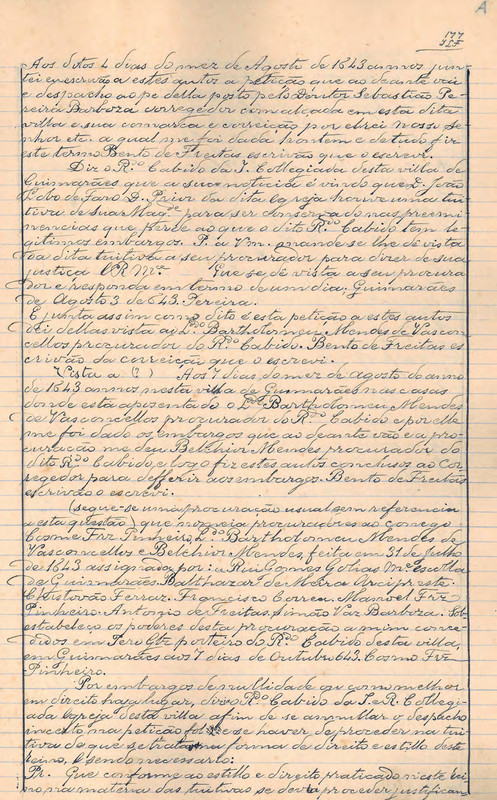 A
177
Aos ditos 4 dias do mez de Agosto de 1643 annos jun-
tei eu escrivão a estes autos a petição que ao deante vai
e despacho ao pe della posto pelo Doutor Sebastião Pe-
reira Barboza corregedor com alçada em esta dita
villa e sua comarca e correição por elrei nosso se-
nhor etc. a qual me foi dada hontem e de tudo fiz
este termo Bento de Freitas escrivão que o escrevi.
Diz o R.do Cabido da S. Collegiada desta villa de
Guimarães que a sua noticia é vindo que D. João
Lobo de Faro D. Prior da dita Egreja houve uma tui-
tiva de Sua Mag.de para ser conservado nas preemi-
nencias que perde ao que o dito R.do Cabido tem le-
gitimos embargos. P. a Vm. mande se lhe dê vista
da dita tuitiva a seu procurador para dizer de sua
justiça E R M.ce Que se dê vista a seu procura-
dor e responda em termo de um dia. Guimarães
de Agosto 3 de 643. Pereira.
E junta assim como dito é esta petição a estes autos
dei dellas vista ao L.do Bartholomeu Mendes de Vascon-
cellos procurador do R.do Cabido. Bento de Freitas es-
crivão da correição que o escrevi.
Vista a (?) Aos 7 dias do mez de Agosto do anno
de 1643 annos nesta villa de Guimarães nas casas
donde esta aposentado o L.do Bartholomeu Mendes
de Vasconcellos procurador do R.do Cabido e por elle
me foi dado os embargos que ao deante vão e a pro-
curação me deu Belchior Mendes procurador do
dito R.do Cabido, e logo fiz estes autos conclusos ao Cor-
regedor para defferir aos embargos. Bento de Freitas
escrivão o escrevi.
(segue-se uma procuração usual sem referencia
a esta questão) que nomeia procuradores ao conego
Cosme Frz Pinheiro, L.do Bartholomeu Mendes de
Vasconcellos e Belchior Mendes, feita em 31 de Julho
de 1643 assignada por: a Rui Gomes Golias M.e escolla
de Guimarães. Balthazar de Meira Arcipreste.
Christovão Ferraz. Francisco Correa. Manoel Frz
Pinheiro. Antonio de Freitas. Simão Vaz Barboza. Sob-
estabeleço os poderes desta procuração a mim conce-
didos em Pero Glz porteiro do R.do Cabido desta villa,
em Guimarães aos 7 dias de Outubro 643. Cosmo Frz
Pinheiro.
Por embargos de nullidade ou como melhor
em direito haja lugar, diz o R.do Cabido da I. e R. Collegi-
ada Egreja desta villa afim de se annullar o despacho
inserto na petição fol. e se haver de proceder na tui-
tiva de que se trata na forma de direito e estillo deste
reino, E sendo necessario:
Pr. Que conforme ao estillo e direito praticado neste rei-
no, na materia das tuitivas se devia proceder justifican-